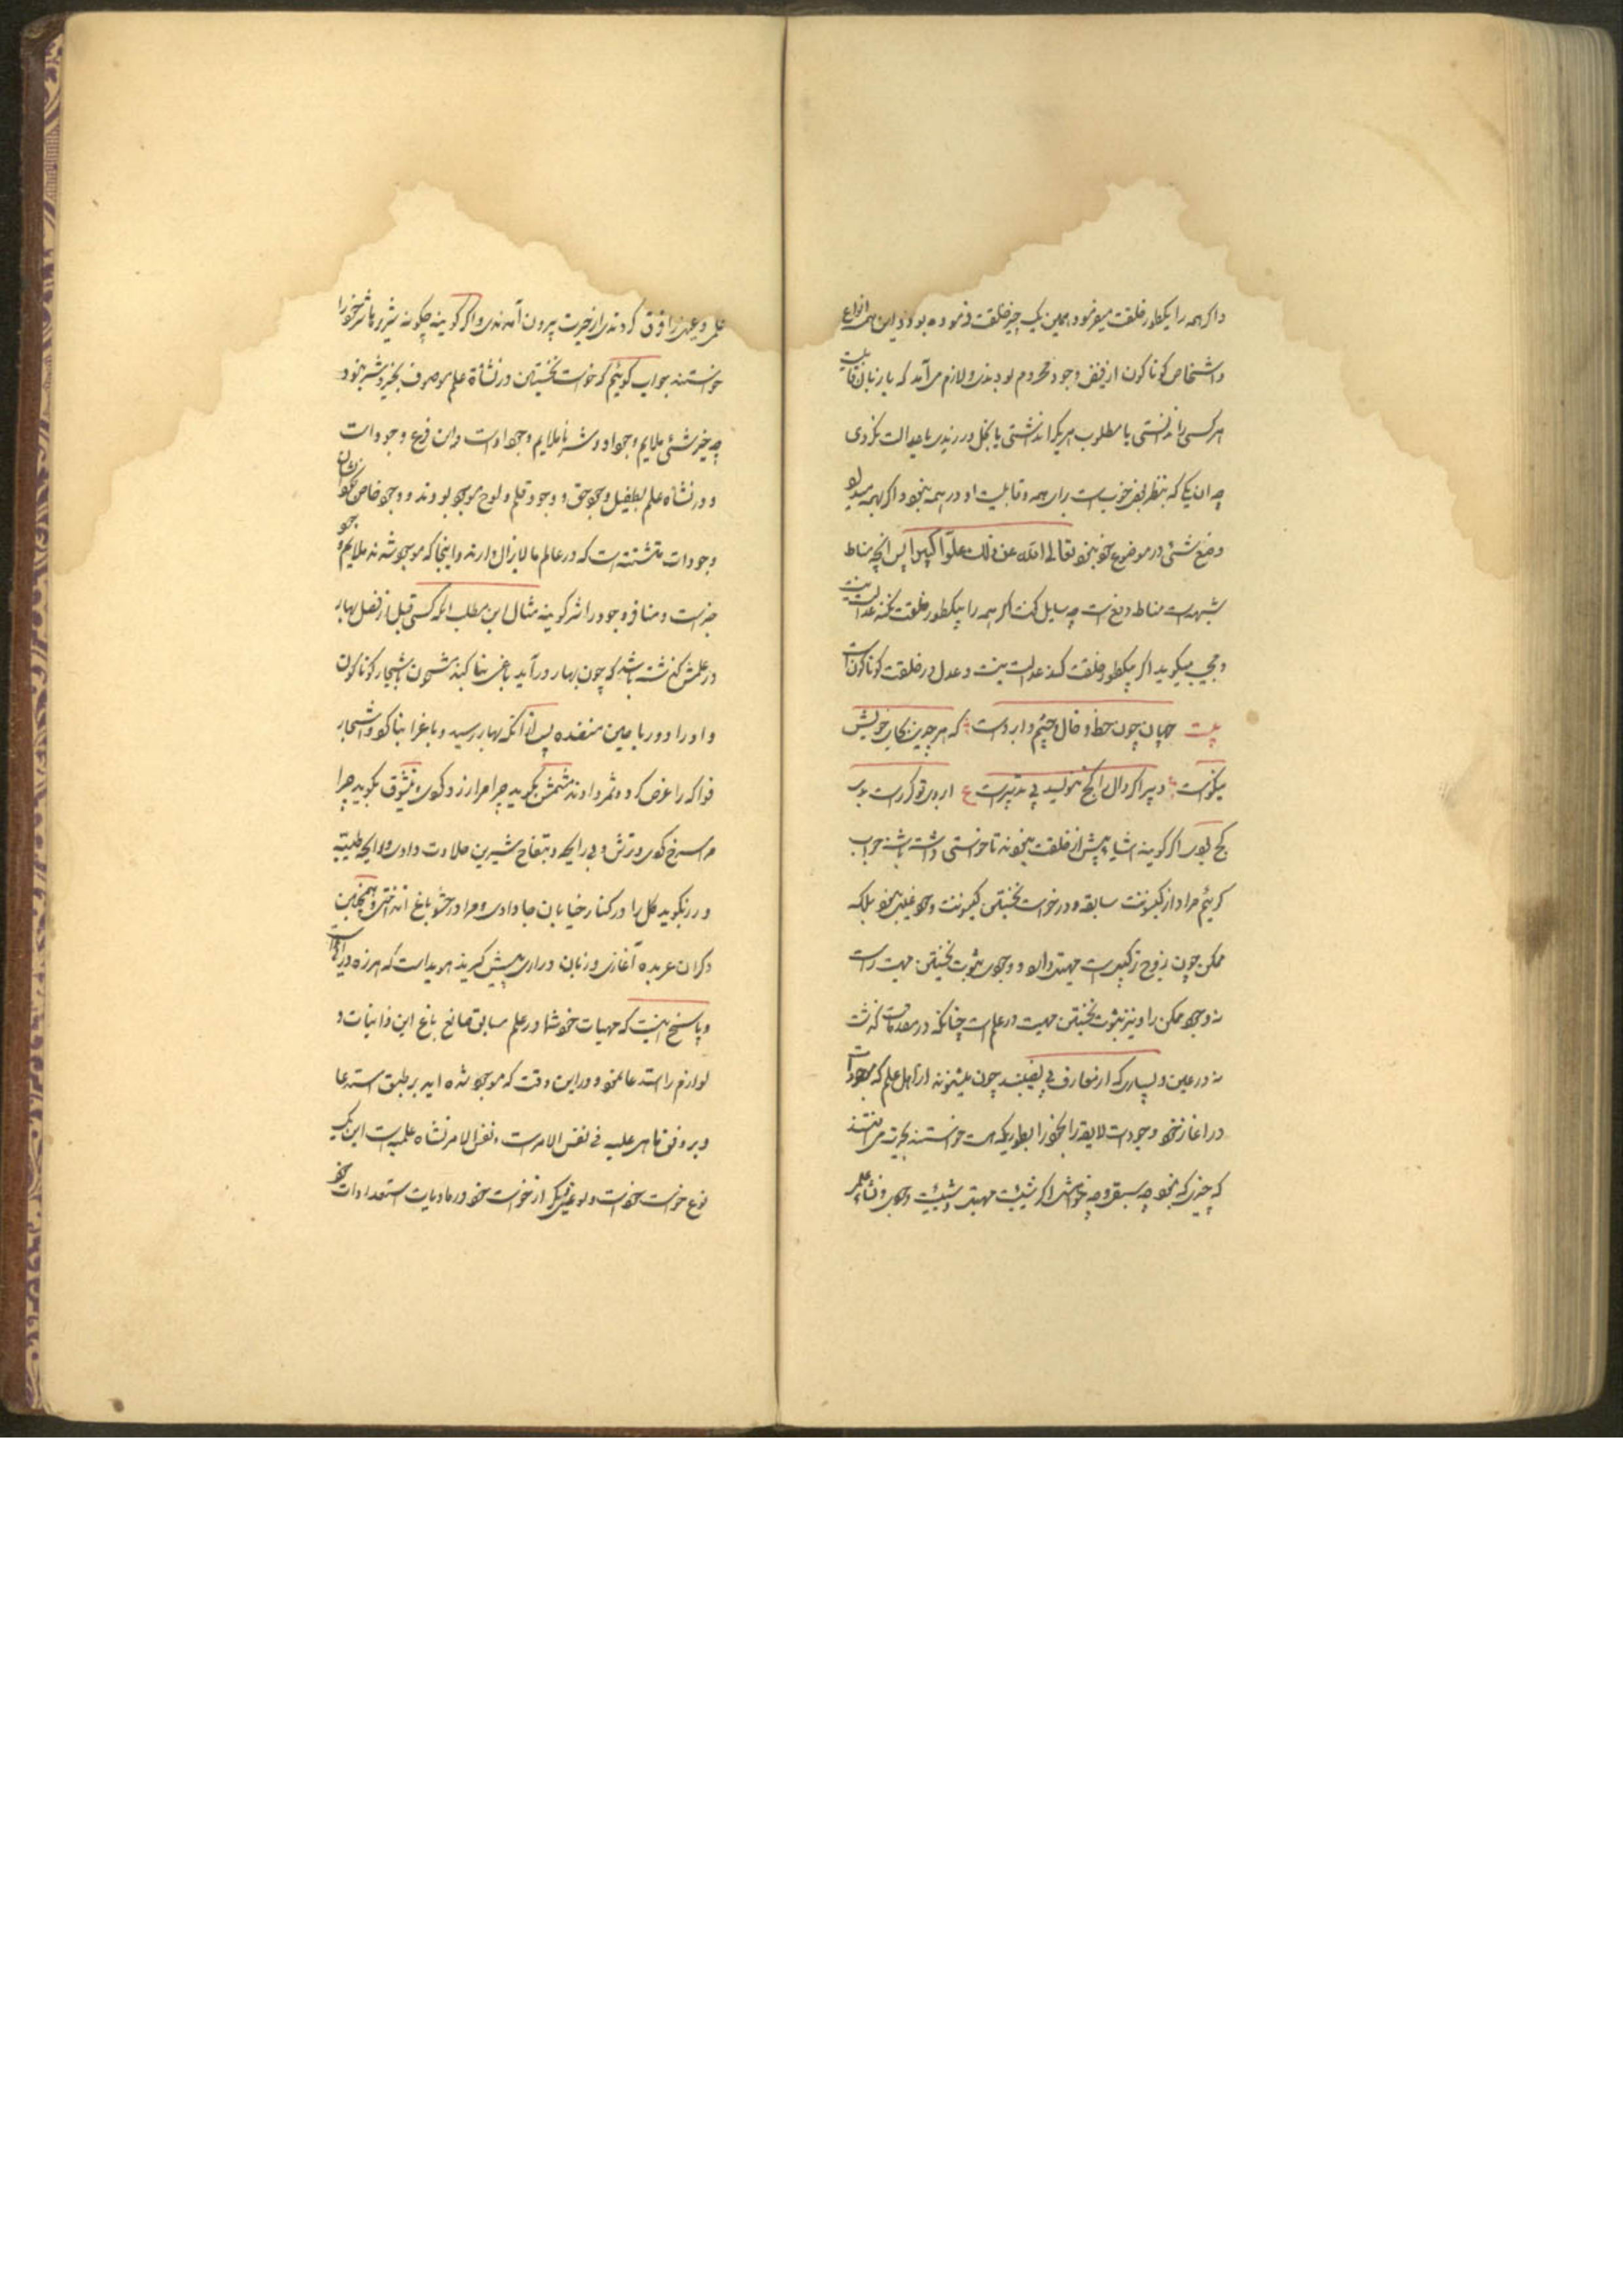 و اگر همه را یکطور خلقت میفرمود همین یک چیز خلقت فرموده بود و این همه انواع
و اشخاص گوناگون از فیض وجود محروم بودندی و لازم می‌آمد که یا زبان قابلیت
هر کسی را ندانستی یا مطلوب هر یک را نداشتی یا بخل ورزیدی یا عدالت نکردی
چه ان یکی که بنظر خوبست برای همه قابلیت او در همه نبود و اگر بهمه میداد
وضع شئی در موضوع خود نبود تعالی الله عن ذلک علوّا کبیرا پس انچه مناط
شبهه است مناط دفع است چه سایل گفت اگر همه را بیکطور خلقت نکند عدالت نیست
و مجیب میگوید اگر بیکطور خلقت کند عدالت نیست و عدل در خلقت گوناگونست
بیت جهان چون خط و خال و چشم و ابروست که هر چیزی بجای خویش
نیکوست دبیر اگر دال را کج ننویسد بی تدبیرست ع ابروی تو گر راست بدی
کج بودی اگر گویند اشیا پیش از خلقت نبودند تا خواستی داشته باشند جواب
گوئیم مراد از کینونت سابقه و درخواست نخستین کینونت وجود عینی نبود بلکه
ممکن چون زوج ترکیبی است مهیتی دارد و وجودی ثبوت نخستین مهیت راست
نه وجود ممکن را و نیز ثبوت نخستین مهیت در علم است چنانکه در مقدمات گذشت
نه در عین و بسیاری که از معارف بی نصیبند چون میشنوند از اهل علم که موجودات
در اغاز نحو وجودات لایقه را بخود ابطوریکه هست خواستند بحیرت می افتند
که چیزی که نبود چه سبق و چه خواهش اگر شیئیت مهیتی و شیئیت وجودی و نشاه علمی
علمی و عینی را فرق کردندی از حیرت بیرون آمدندی و اگر گویند چگونه شریر ها شر خود را
خواستند جواب گوئیم که خواست نخستین در نشأة علم موصوف بخیر و شر نبود
چه خیر شئی ملایم وجود او و شر نا ملایم وجود اوست و این فرع وجودات
و در نشاه علم بطفیل وجود حق و وجود قلم و لوح موجود بودند و وجود خاص نکو شان
وجودات متشتته است که در عالم ما لا یزال دارند و اینجا که موجود شدند ملایم وجود
خیرست و منافر وجود را شر گویند مثال این مطلب انکه کسی قبل از فصل بهار
در علمش گذشته باشد که چون بهار درآید باغی بنا کند مشحون باشجار گوناگون
و اوراد و ریاحین منضده پس از انکه بهار رسید و باغ را بنا کرد و اشجار
فواکه را غرس کرد و ثمر دادند مشمش بگوید چرا مرا زرد کردی و نیشوق بگوید چرا
مرا سرخ کردی و ترش و بی رایحه و بتفاح شیرین حلاوت دادی و رایحه طیبه
و رز بگوید گل را در کنار خیابان جا دادی و مرا در حشو باغ انداختی و همچنین
دگران عربده آغازند و زبان درازی پیش گیرند هویداست که هرزه درائیست
و پاسخ اینست که مهیات خود شما در علم سابق صانع باغ این ذاتیات و
لوازم را استدعا نمود و در این وقت که موجود شده اید بر طبق استدعا
و بر وفق ما هی علیه فی نفس الامرست و نفس الامر نشاه علمیه است این یک
نوع خواست خود است و نوعی دیگر از خواست خود در مادیات استعدادات خود